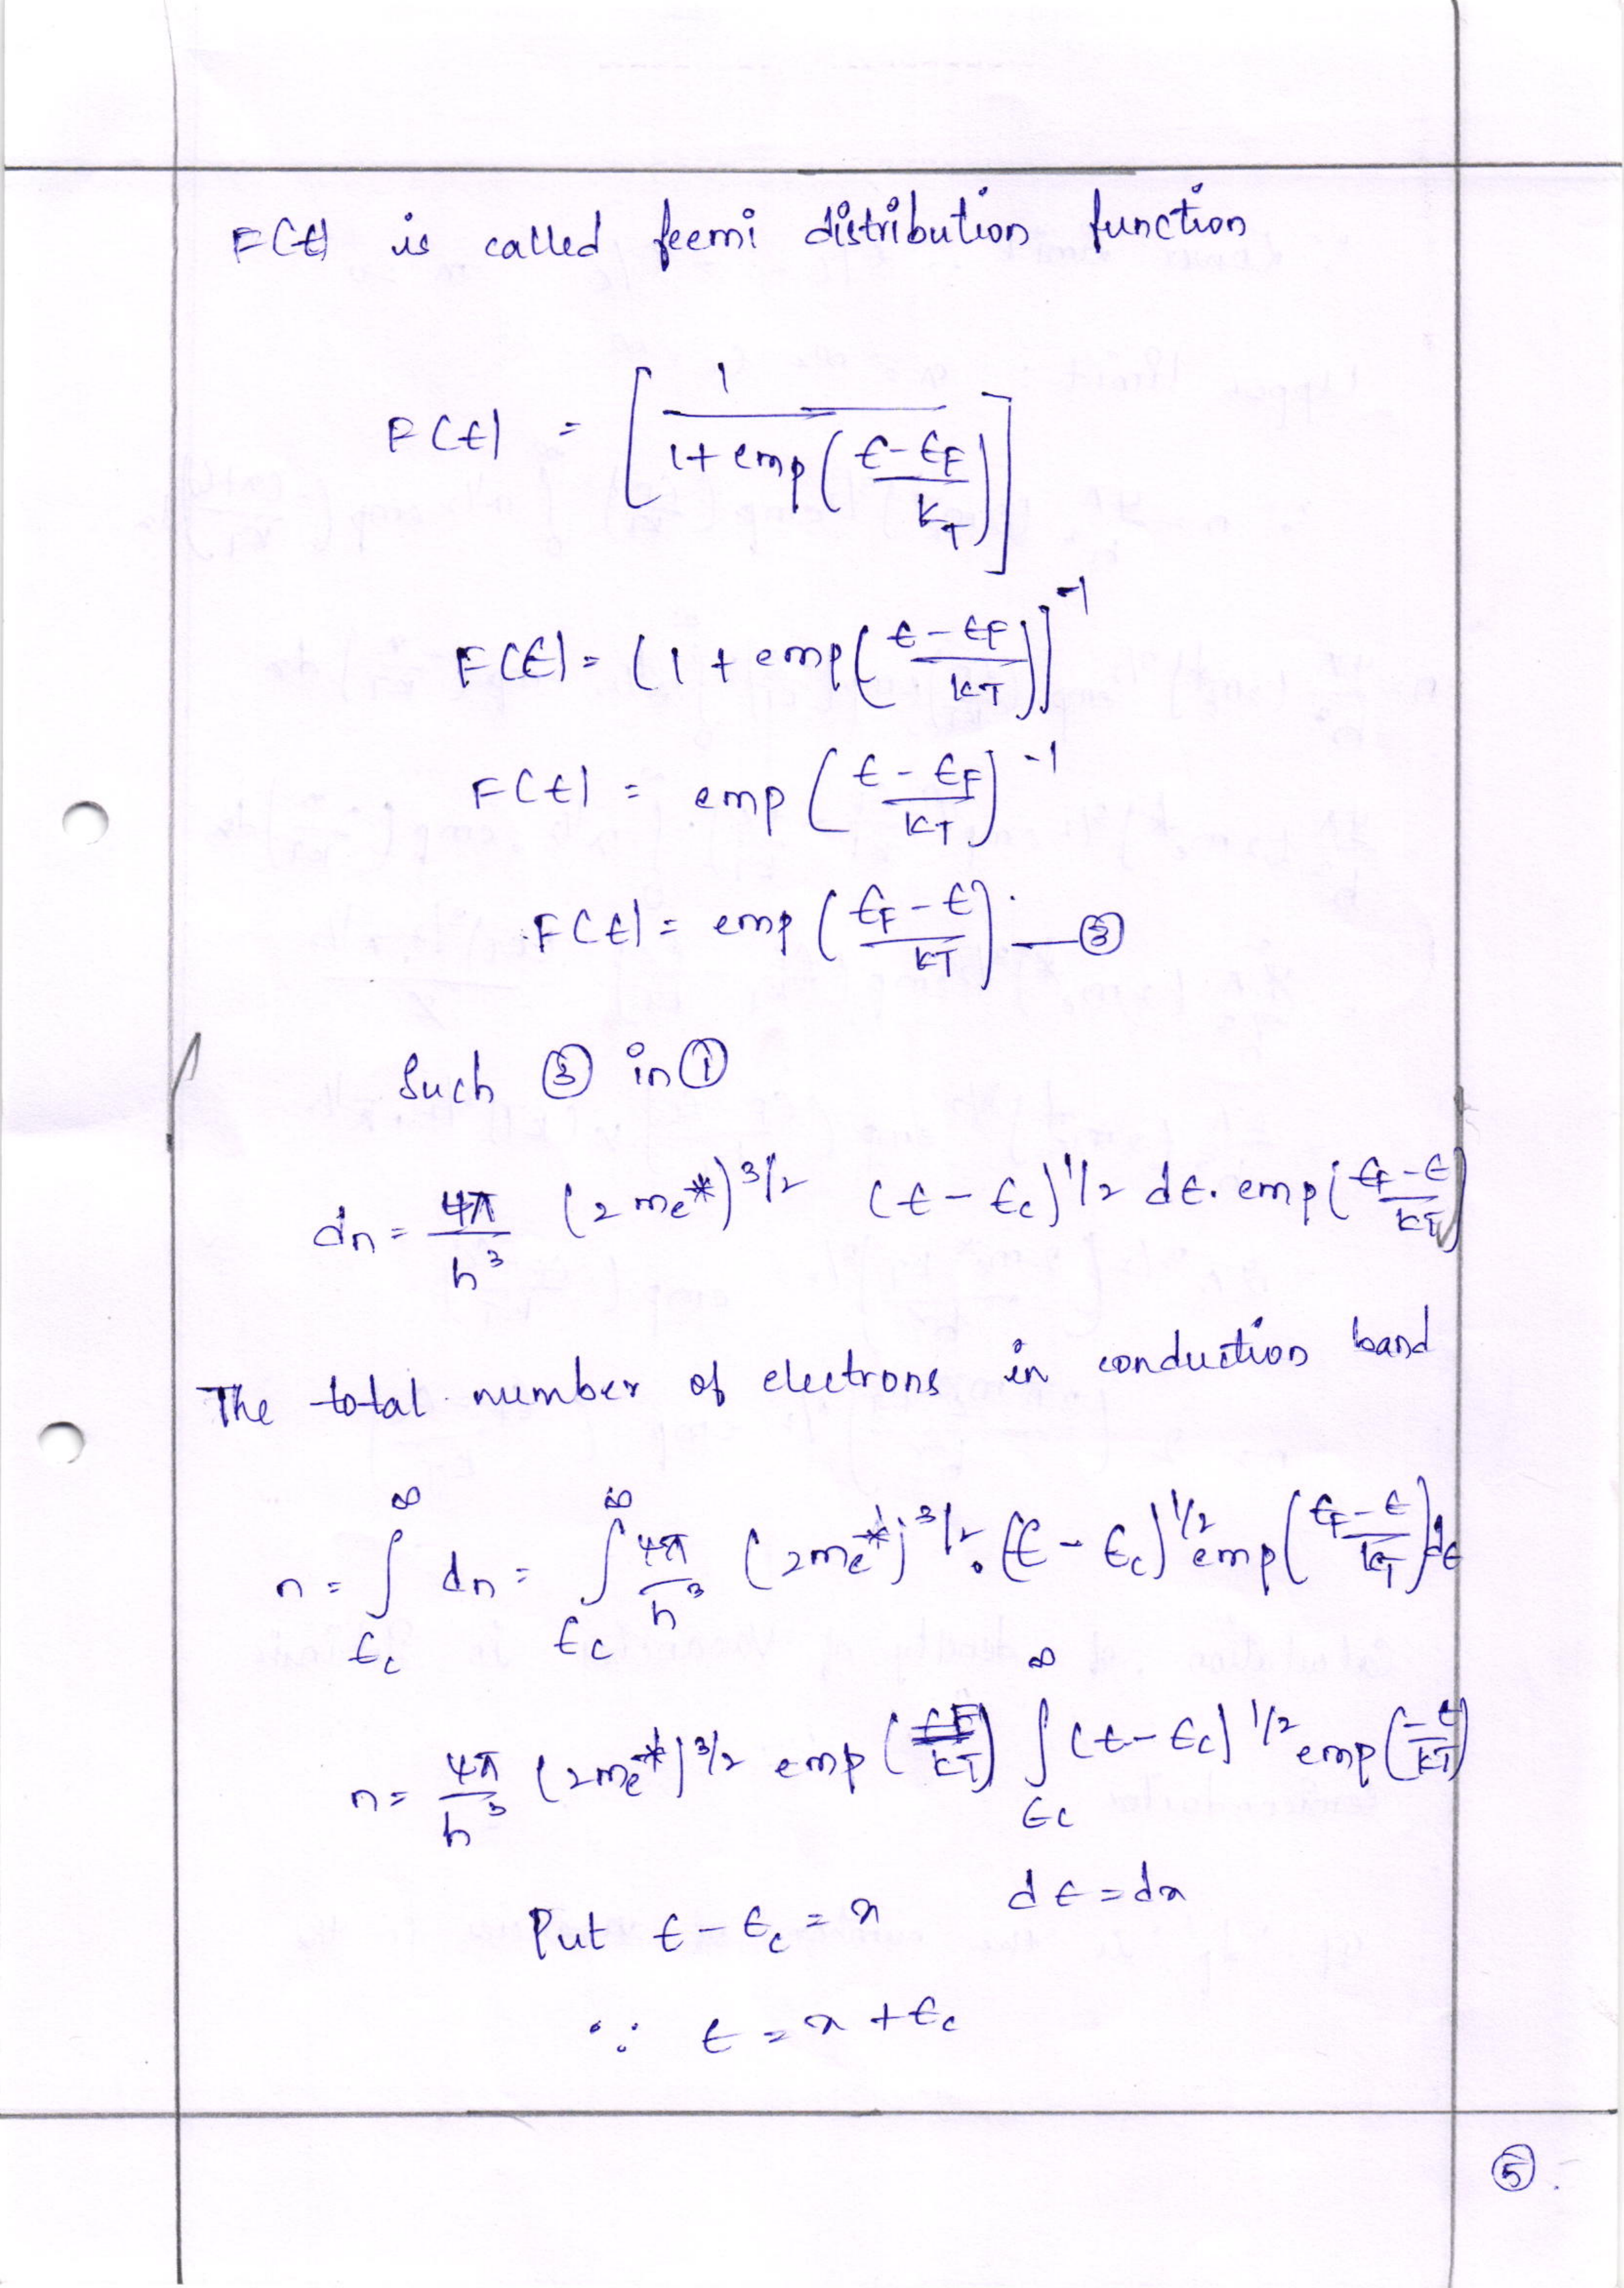 F(E) is called feemi distribution function
F(E) = [1 / (1+ exp((E-EF)/KT))]
F(E) = (1 + exp((E-EF)/KT))^-1
F(E) = exp((E-EF)/KT)^-1
F(E) = exp((EF-E)/KT) — ③
Such ③ in ①
dn = 4π/h³ (2me*)^3/2 (E-Ec)^1/2 dE. exp((EF-E)/KT)
The total number of electrons in conduction band
n = ∫_Ec^∞ dn = ∫_Ec^∞ 4π/h³ (2me*)^3/2. (E-Ec)^1/2 exp((EF-E)/KT) dE
n = 4π/h³ (2me*)^3/2 exp(EF/KT) ∫_Ec^∞ (E-Ec)^1/2 exp(-E/KT)
Put E-Ec = x dE = dx
∵ E = x + Ec
⑤